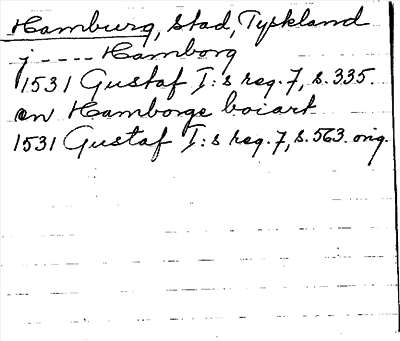 Hamburg, stad, Tyskland
j ---- Hamborg
1531 Gustaf I:s reg. 7, s. 335.
en Hamborge boiart
1531 Gustaf I:s reg. 7, s. 563. orig.